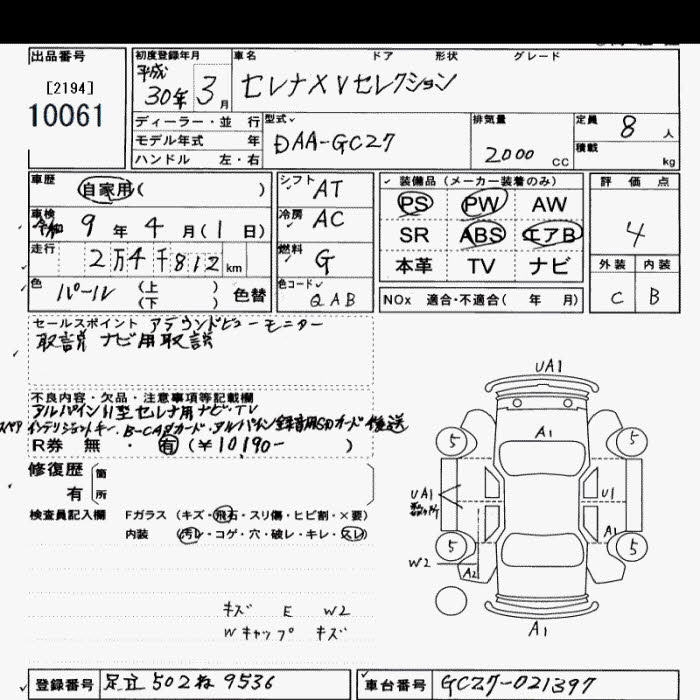 出品番号
[2194]
10061
初度登録年月 車名 ドア 形状 グレード
平成
30年 3月 セレナXVセレクション
ディーラー・並 行
モデル年式 年
ハンドル 左・右
型式 DAA-GC27
排気量 2000 CC
定員 8 人
積載 kg
車歴 自家用( )
車検 令和 9 年 4 月(1 日)
走行 2万4千812 km
色 パール (上 下) 色替
シフト AT
冷房 AC
燃料 G
色コード QAB
装備品(メーカー装着のみ)
PS PW AW
SR ABS エアB
本革 TV ナビ
NOx 適合・不適合( 年 月)
評価点
4
外装 内装
C B
セールスポイント アラウンドビューモニター
取説 ナビ用取説
不良内容・欠品・注意事項等記載欄
アルパイン11型セレナ用ナビ・TV
スペアインテリジェントキー、B-CASカード・アルパイン録音用SDカード後送
R券 無・有(¥10190- )
修復歴
有 箇所
検査員記入欄 Fガラス (キズ・飛石・スリ傷・ヒビ割・×要)
内装 (汚レ・コゲ・穴・破レ・キレ・スレ)
キズ E W2
Wキャップ キズ
UA1
A1
5 5
UA1
U1
A1
5 5
W2
A2
A1
登録番号 足立 502ね 9536
車台番号 GC27-021397